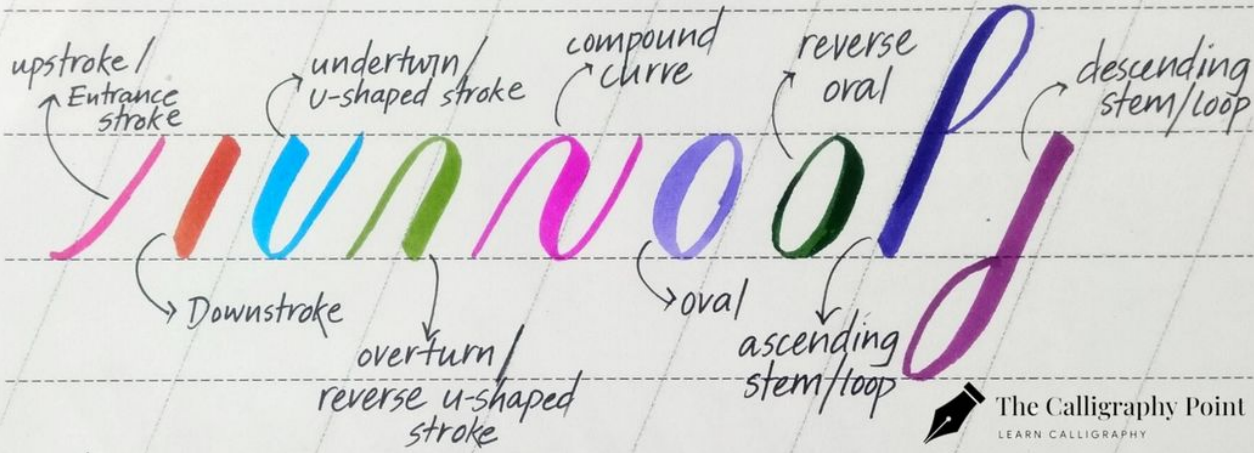 upstroke/
Entrance
stroke
undertwrn/
U-shaped stroke
compound
curve
reverse
oval
descending
stem/loop
Downstroke
overturn/
reverse u-shaped
stroke
oval
ascending
stem/loop
The Calligraphy Point
LEARN CALLIGRAPHY